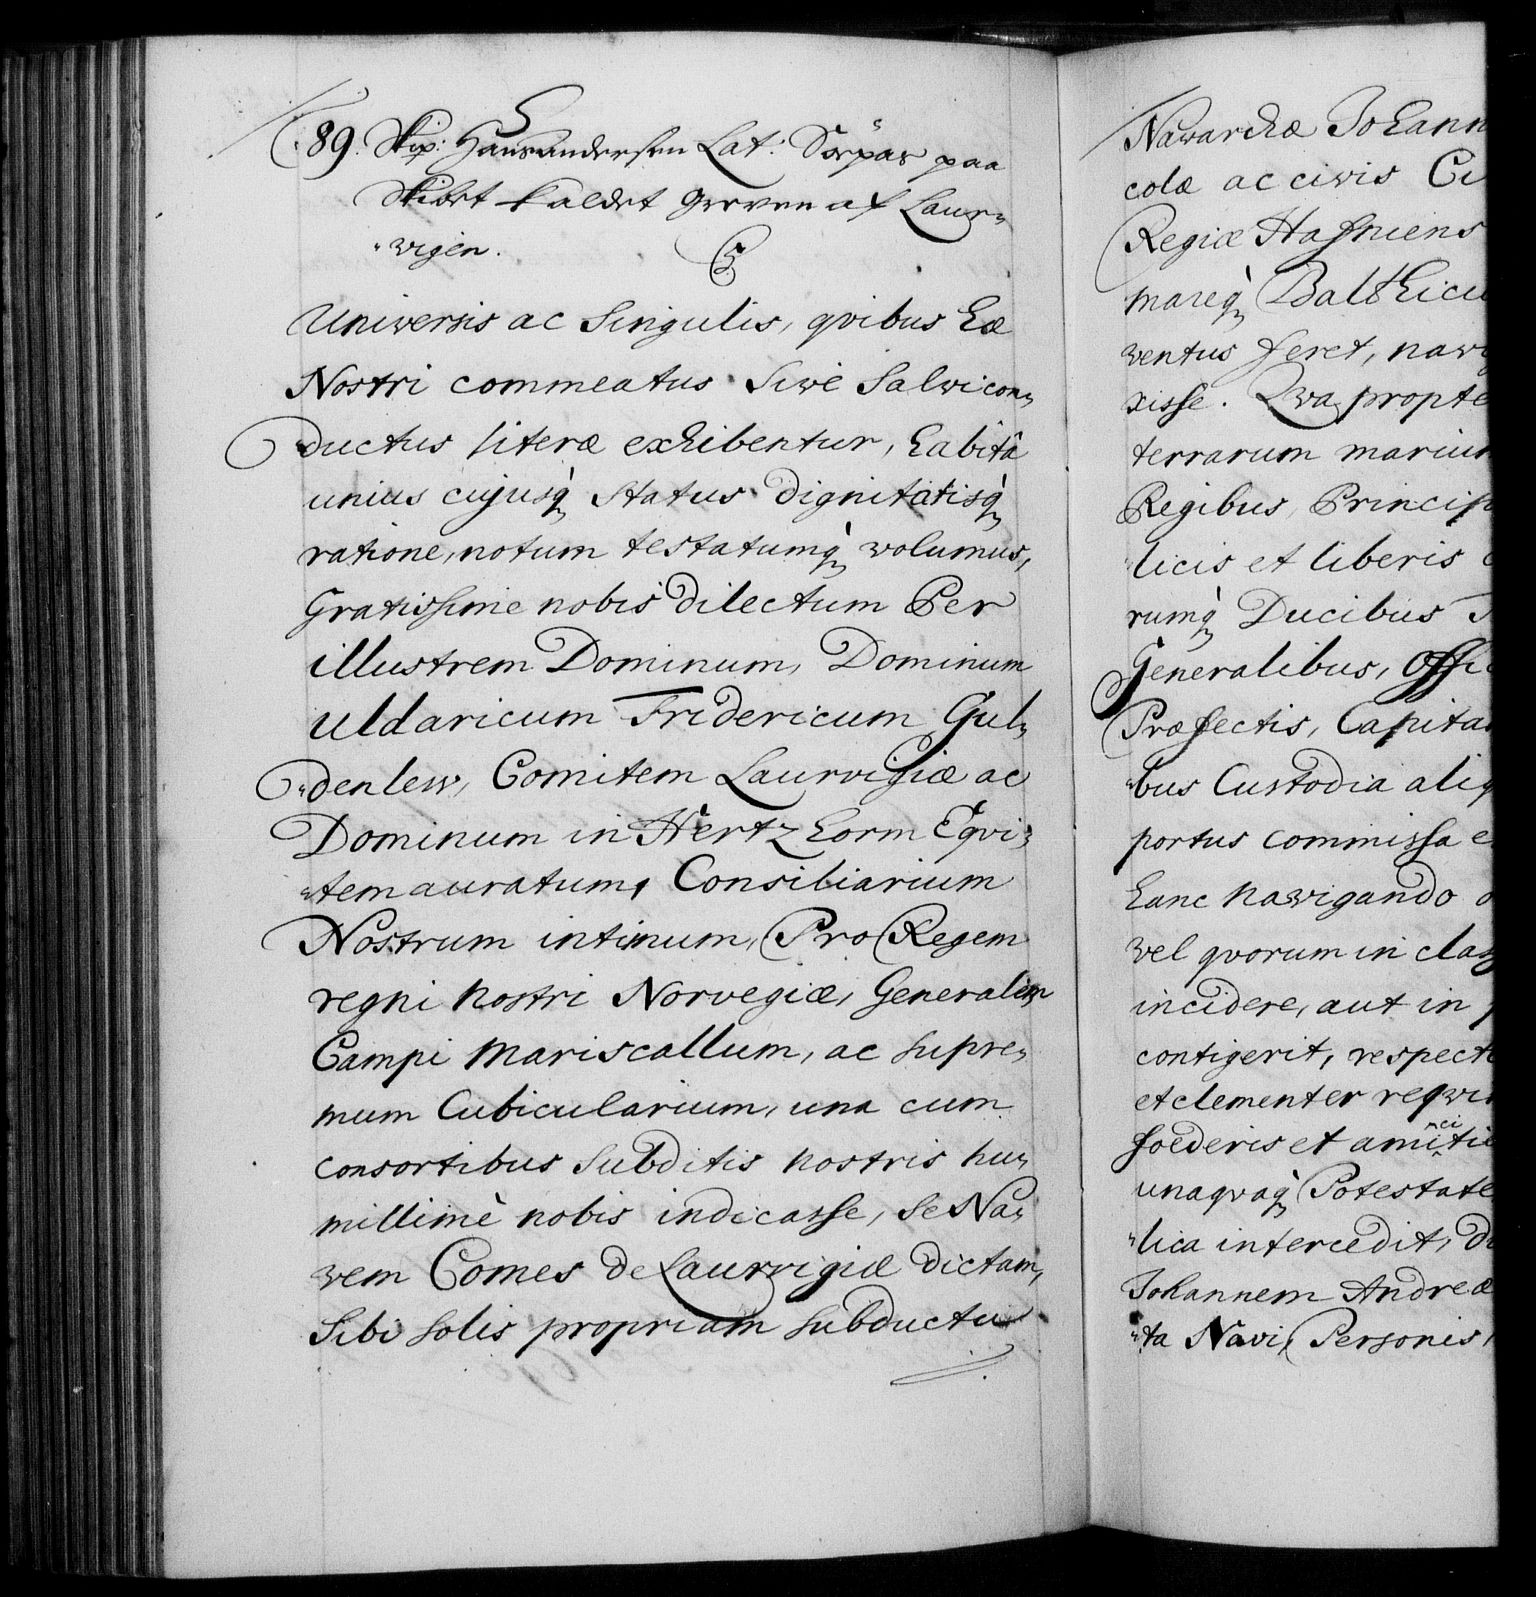 89. Skip: Hans Andersen Lat: Söepas paa
Skibet kaldet Greven af Laur„
„wigen.
C5
Universis ac Singulis, qvibus hæ
Nostri commeatus Sive Salvicon„
ductus literæ exhibentur, habitâ
unius cujusq̀ Status dignitatisq̀
ratione, notum testatumq̀ volumus,
Gratissime nobis dilectum Per
illustrem Dominum, Dominum
Uldaricum Fridericum Gul„
„denlew, Comitem Laurvigiæ ac
Dominum in Hertzhorm Eqvi„
„tem auratum, Consiliarium
Nostrum intimum, Pro Regem
regni nostri Norvegiæ, Generalem
Campi Mariscallum, ac supre„
mum Cubicularium, una cum
consortibus Subditis nostris hu„
millimè nobis indicasse, se Na„
vem Comes de Laurvigiæ dictam,
Sibi solis propriam subductu
Navarchæ Johann
colæ ac civis Ci
Regiæ Hafniens
mareq̀ Balthicu
ventus feret, navig
xisse. Qva propte
terrarum marium
Regibus, Princip
licis et liberis
rumq̀ Ducibus
Generalibus, Offic
Præfectis, Capita
„bus Custodia aliq
portus commissa e
hanc navigando
vel qvorum in clas
incidere, aut in
contigerit, respect
et clementer reqvi
foederis et amicitiæ
unaqvaq̀ Potestate
„lica intercedit, d
Johannem Andreæ
„ta Navi, Personis,